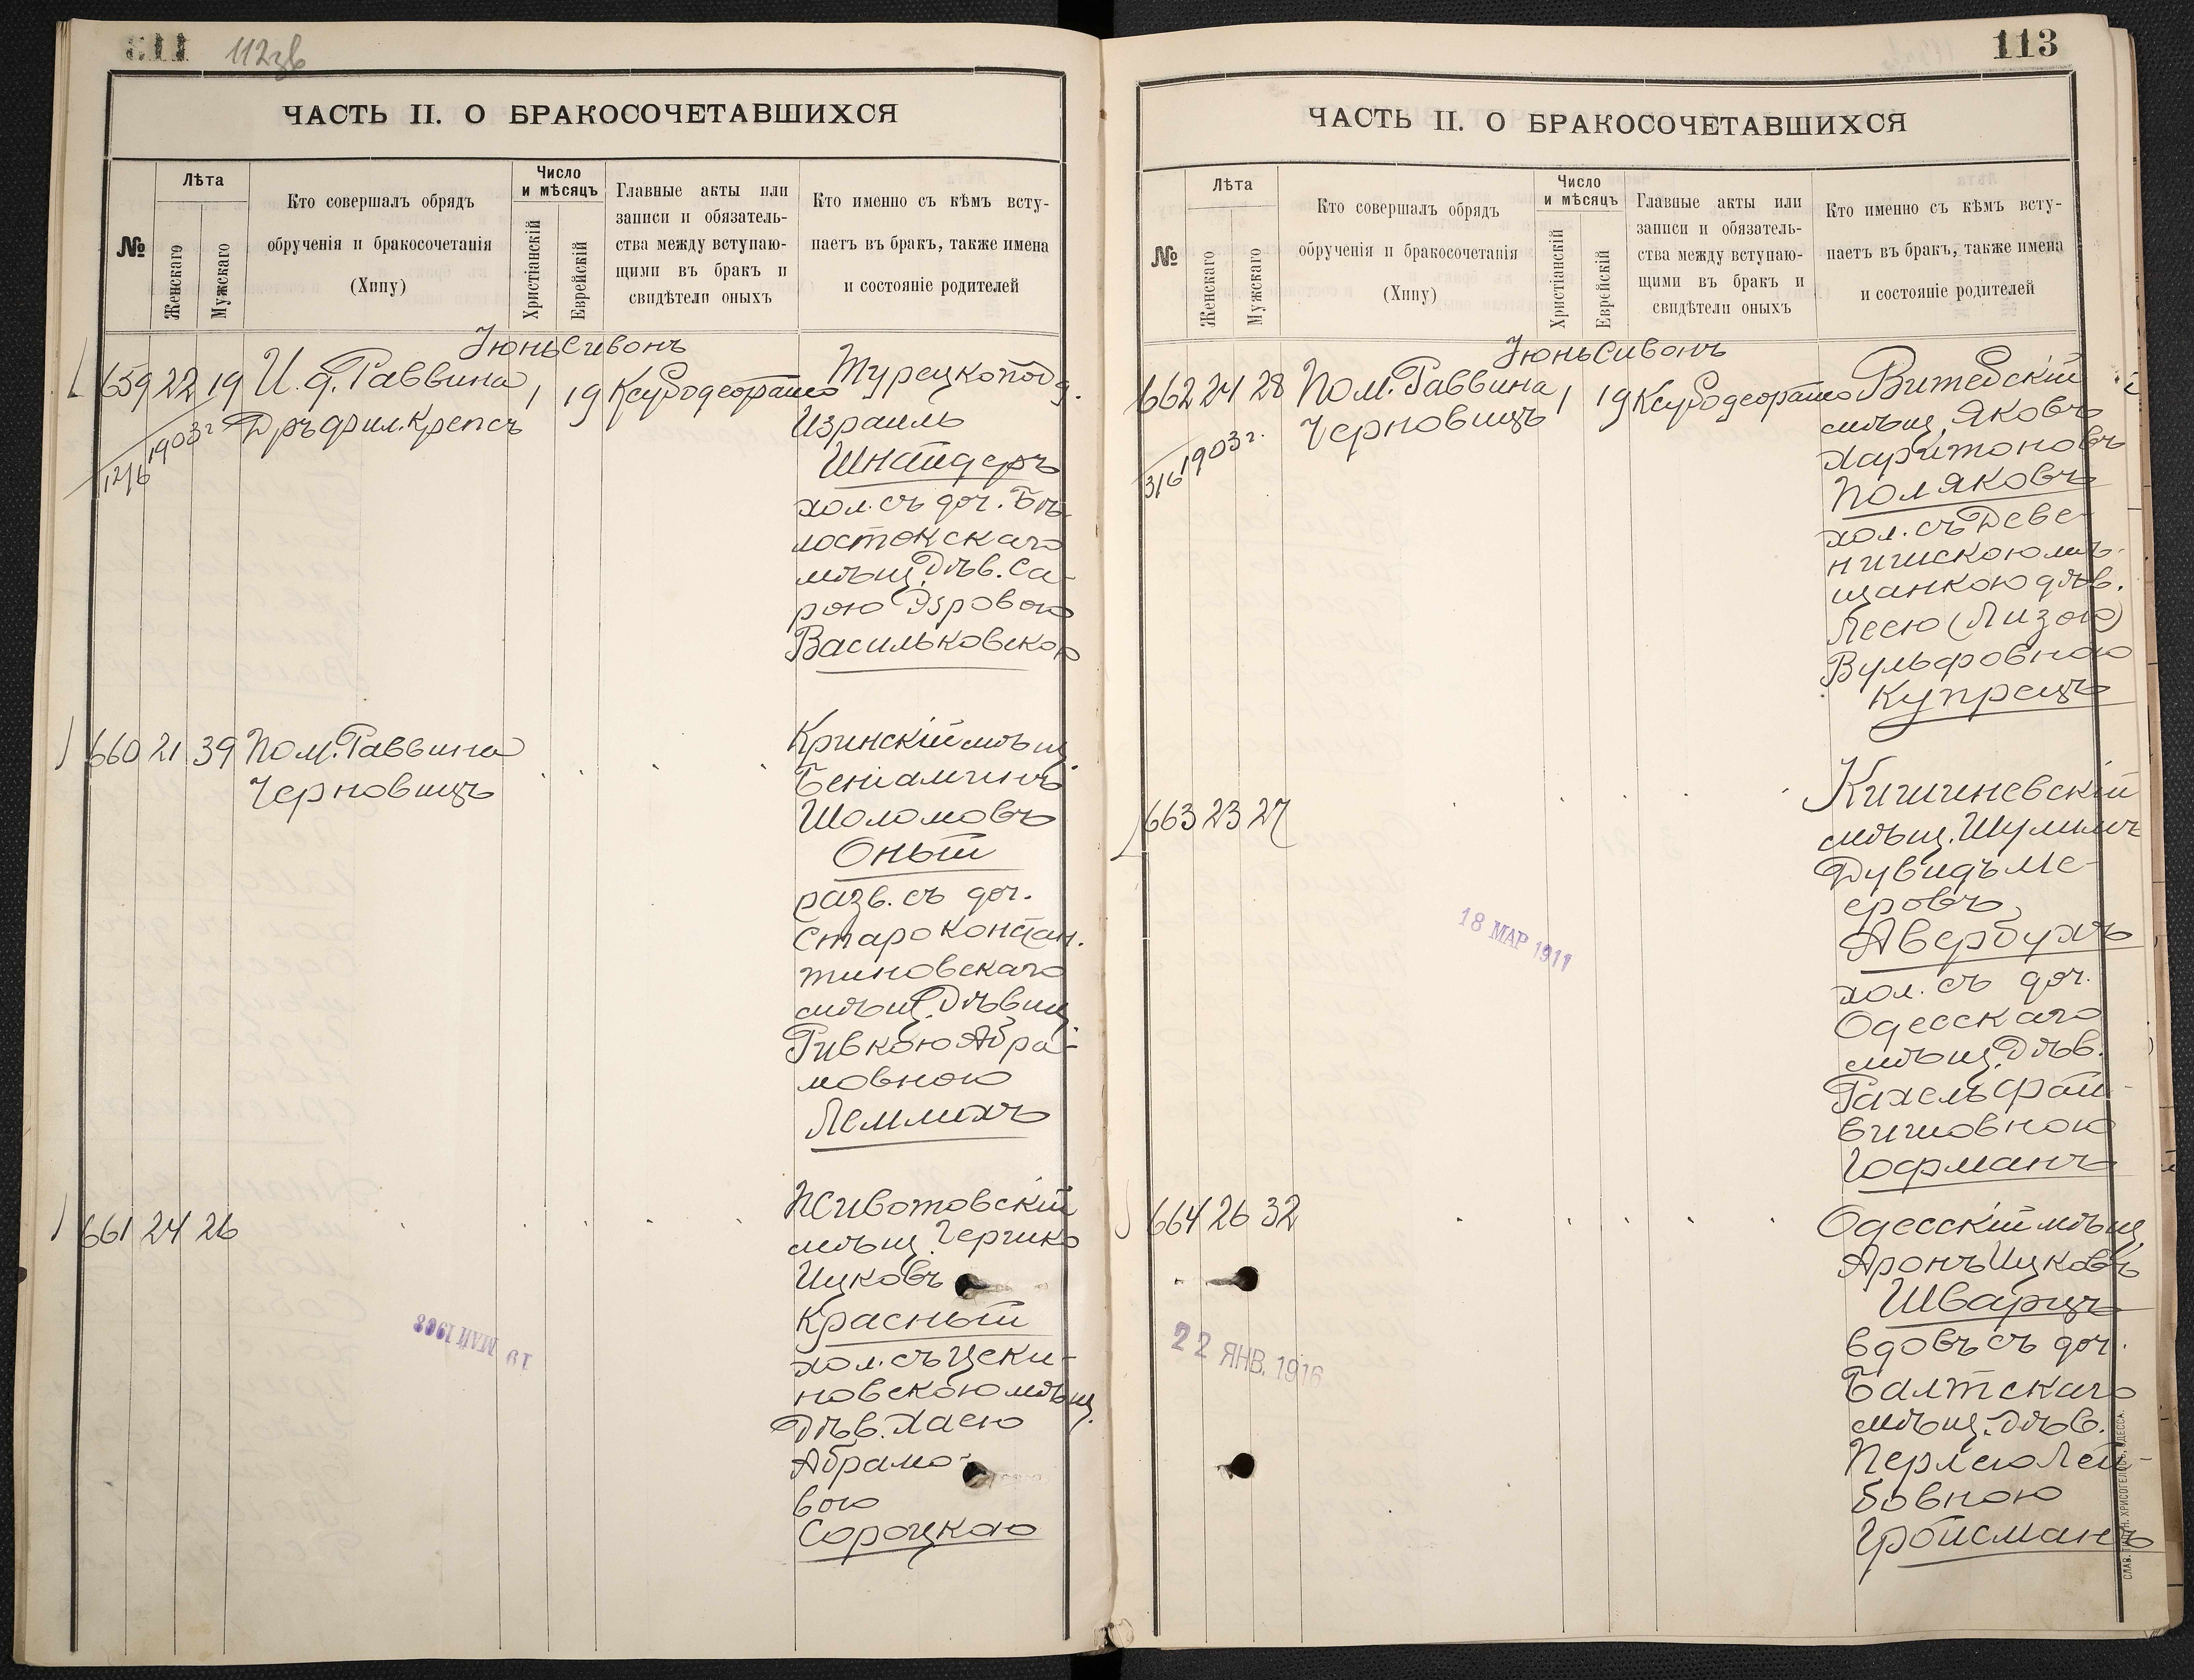 112зв
ЧАСТЬ II. О БРАКОСОЧЕТАВШИХСЯ
№
Лѣта
Женскаго
Мужскаго
Кто совершалъ обрядъ
обрученія и бракосочетанія
(Хипу)
Число
и мѣсяцъ
Христіанскій
Еврейскій
Главные акты или
записи и обязатель-
ства между вступаю-
щими въ бракъ и
свидѣтели оныхъ
Кто именно съ кѣмъ всту-
паетъ въ бракъ, также имена
и состояніе родителей
Іюнь Сивонъ
659 22 19 И. д. Раввина 1 19
Дръ фил. Крепсъ
12/6 1903г
Турецкоподд.
Израиль
Шнайдеръ
хол. съ доч. Бѣ-
лостокскаго
мѣщ. Дѣв. Са-
рою Эзровою
Васильковскою
660 21 39 Пом. Раввина
Черновицъ
Кринскій мѣщ.
Беніаминъ
Шоломовъ
Оный
разв. съ доч.
Староконстан.
тиновскаго
мѣщ. Дѣвиц.
Ривкою Абра-
мовною
Лемлихъ
661 24 26
Животовскій
мѣщ. Гершко
Ицковъ
Красный
хол. съ Цеки-
новскою мѣщ.
Дѣв. Хасею
Абрамо-
вою
Сороцкаю
19 МАЙ 1908
113
ЧАСТЬ II. О БРАКОСОЧЕТАВШИХСЯ
№
Лѣта
Женскаго
Мужскаго
Кто совершалъ обрядъ
обрученія и бракосочетанія
(Хипу)
Число
и мѣсяцъ
Христіанскій
Еврейскій
Главные акты или
записи и обязатель-
ства между вступаю-
щими въ бракъ и
свидѣтели оныхъ
Кто именно съ кѣмъ всту-
паетъ въ бракъ, также имена
и состояніе родителей
Іюнь Сивонъ
662 24 28 Пом. Раввина 1 19
Черновицъ
3/6 1903г.
Витебскій
мѣщ. Яковъ
Харитоновъ
Поляковъ
хол. съ Деве-
нишскою мѣ-
щанкою дѣв.
Лесю (Лизою)
Вульфовною
Купрецъ
663 23 27
Кишиневскій
мѣщ. Шулимъ
Дувидъ Ме-
еровъ
Авербухъ
хол. съ доч.
Одесскаго
мѣщ. Дѣв.
Рахель Фай-
вишовною
Гофманъ
18 МАР 1911
664 26 32
Одесскій мѣщ.
Аронъ Ицковъ
Шварцъ
вдовъ съ доч.
Балтскаго
мѣщ. Дѣв.
Перлею Лей-
бовною
Гройсманъ
22 ЯНВ. 1916
СЛАВ. ТИП. Н. ХРИСОГЕЛОСЪ, ОДЕССА.